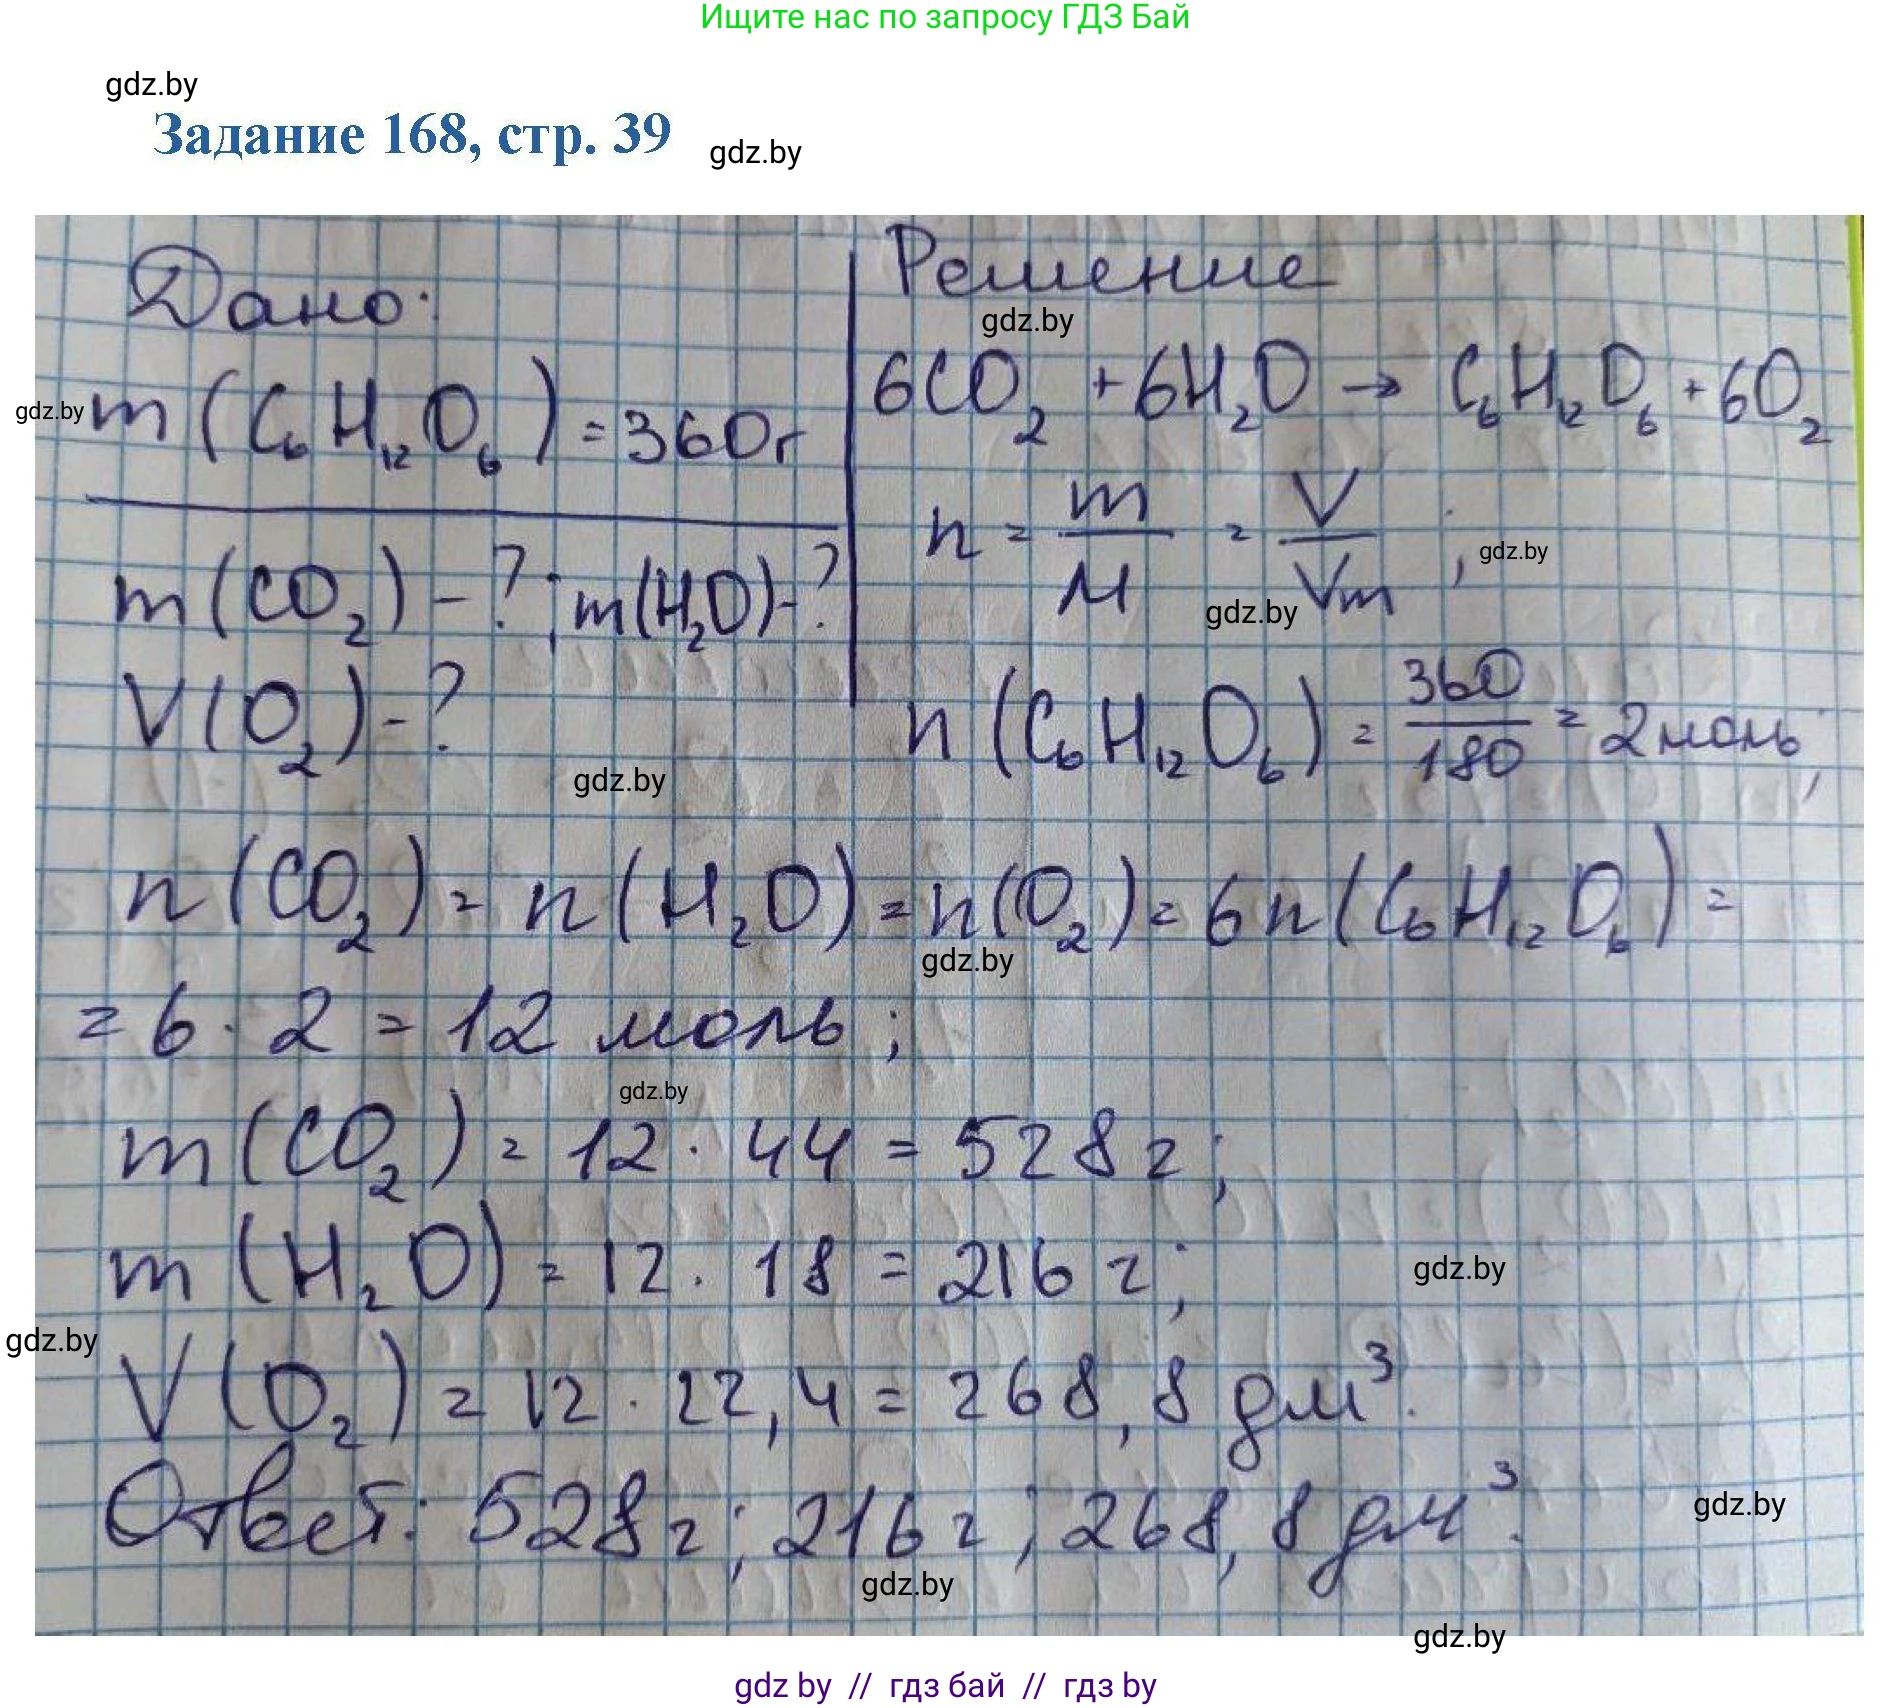 Ищите нас по запросу ГДЗ Бай
gdz.by
Задание 168, стр. 39
gdz.by
Дано:
m (C₆H₁₂O₆) = 360г
m (CO₂) - ? ; m(H₂O) - ?
V (O₂) - ?
Решение
gdz.by
6CO₂ + 6H₂O → C₆H₁₂O₆ + 6O₂
gdz.by
n = m/M = V/Vm ;
gdz.by
gdz.by
n (C₆H₁₂O₆) = 360/180 = 2 моль;
gdz.by
n (CO₂) = n (H₂O) = n (O₂) = 6n (C₆H₁₂O₆) =
gdz.by
= 6 · 2 = 12 моль ;
gdz.by
m (CO₂) = 12 · 44 = 528 г;
m (H₂O) = 12 · 18 = 216 г;
gdz.by
gdz.by
V (O₂) = 12 · 22,4 = 268,8 дм³.
Ответ: 528 г; 216 г; 268,8 дм³.
gdz.by
gdz.by
gdz.by
gdz by // гдз бай // гдз by